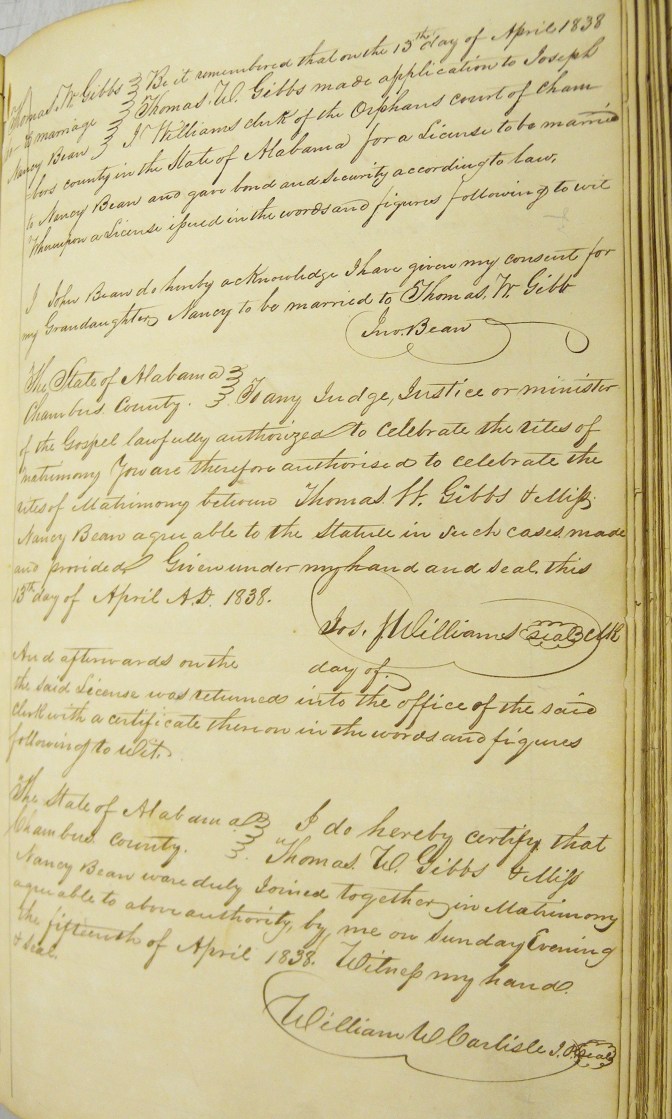 Thomas. W. Gibbs Be it remembered that on the 13th day of April 1838
to marriage Thomas. W. Gibbs made application to Joseph
Nancy Bean J. Williams clerk of the Orphans court of Cham
-bers county in the State of Alabama for a License to be married
to Nancy Bean and gave bond and security according to law,
Whereupon a License issued in the words and figures following to wit
I John Bean do hereby acknowledge I have given my consent for
my Grandaughter, Nancy to be married to Thomas. W. Gibb
Jno. Bean
The State of Alabama
Chambers County. To any Judge, Justice or minister
of the Gospel lawfully authorized to celebrate the rites of
matrimony You are therefore authorised to celebrate the
rites of Matrimony between Thomas. W. Gibbs & Miss.
Nancy Bean agreable to the Statute in such cases made
and provided Given under my hand and seal this
13th day of April A.D. 1838.
Jos. J Williams seal Clk
And afterwards on the day of
the said License was returned into the office of the said
clerk with a certificate thereon in the words and figures
following to wit.
The State of Alabama I do hereby certify that
Chambers County. Thomas. W. Gibbs & Miss
Nancy Bean ware duly Joined together in Matrimony
agreable to above authority, by me on Sunday Evening
the fifteenth of April 1838. Witness my hand
& seal.
William W Carlisle J. P. seal